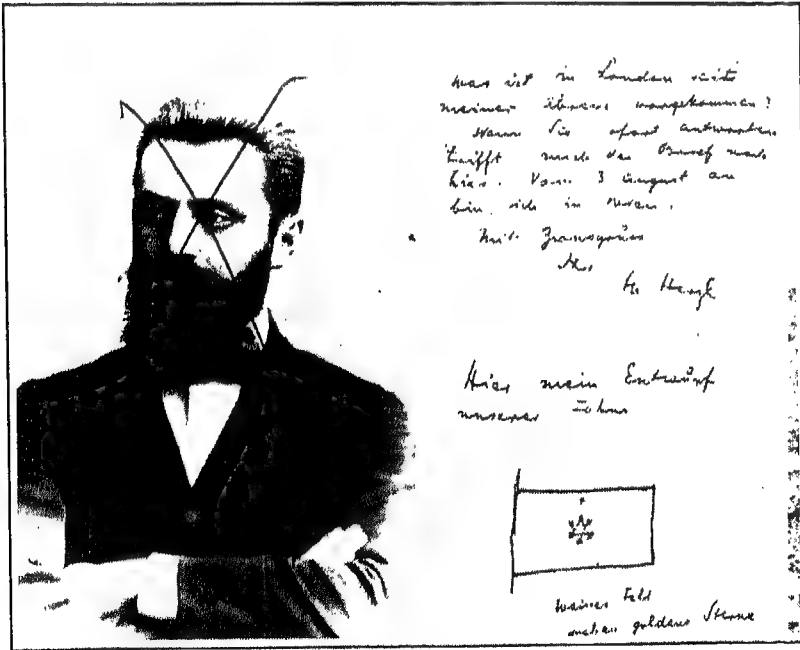 was ist in London seit
meiner übrens vorgekommen?
Wenn Sie sofort antworten
trifft mich der Brief noch
hier. Vom 3 August an
bin ich in Wien.
Mit Zionsgruss
Ihr
Th Herzl
Hier mein Entwurf
unserer Fahne
weisses Feld
sieben goldene Sterne